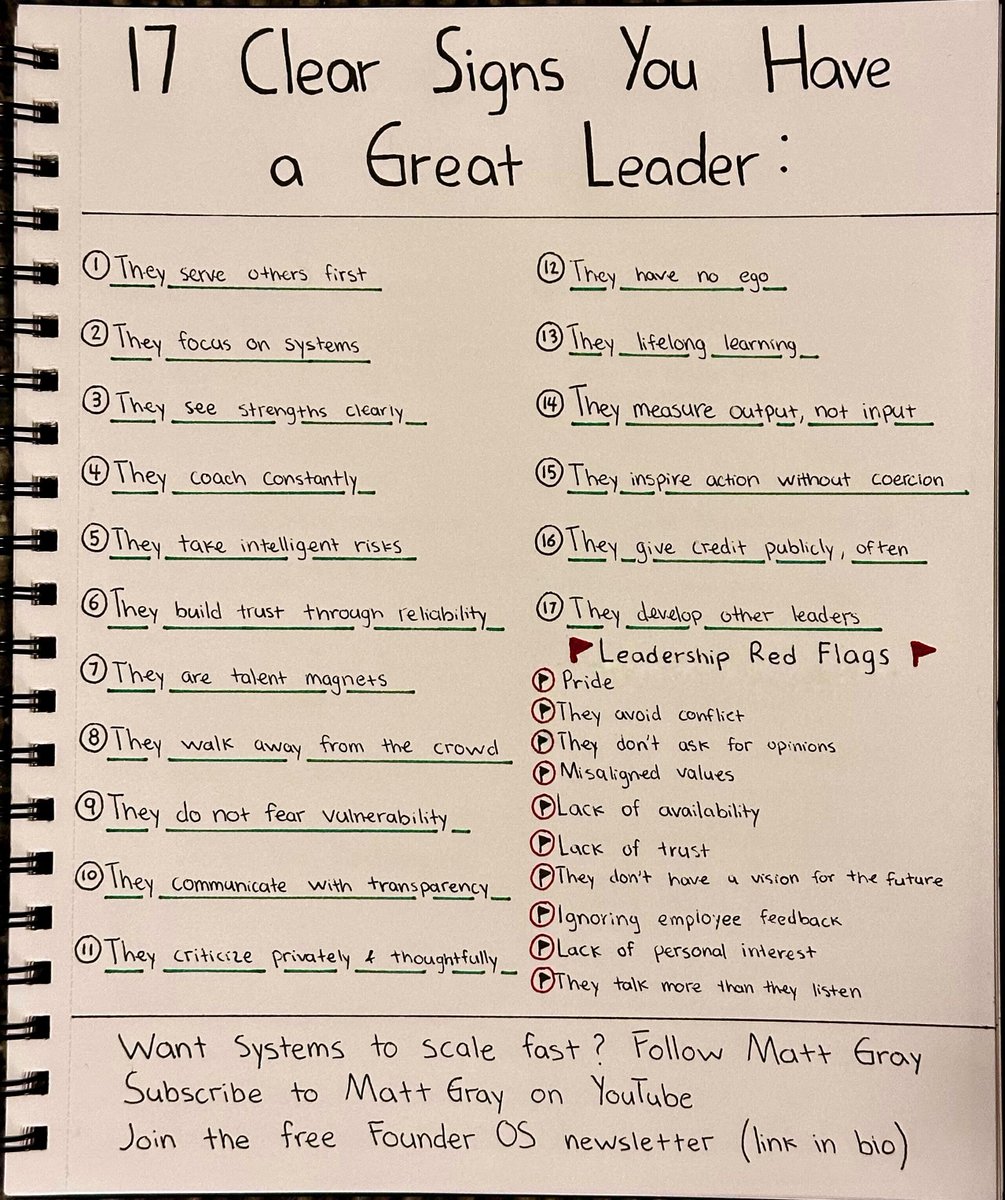 17 Clear Signs You Have
a Great Leader:
① They serve others first
② They focus on systems
③ They see strengths clearly
④ They coach constantly
⑤ They take intelligent risks
⑥ They build trust through reliability
⑦ They are talent magnets
⑧ They walk away from the crowd
⑨ They do not fear vulnerability
⑩ They communicate with transparency
⑪ They criticize privately & thoughtfully
⑫ They have no ego
⑬ They lifelong learning
⑭ They measure output, not input
⑮ They inspire action without coercion
⑯ They give credit publicly, often
⑰ They develop other leaders
Leadership Red Flags
Pride
They avoid conflict
They don't ask for opinions
Misaligned values
Lack of availability
Lack of trust
They don't have a vision for the future
Ignoring employee feedback
Lack of personal interest
They talk more than they listen
Want Systems to scale fast? Follow Matt Gray
Subscribe to Matt Gray on YouTube
Join the free Founder OS newsletter (link in bio)